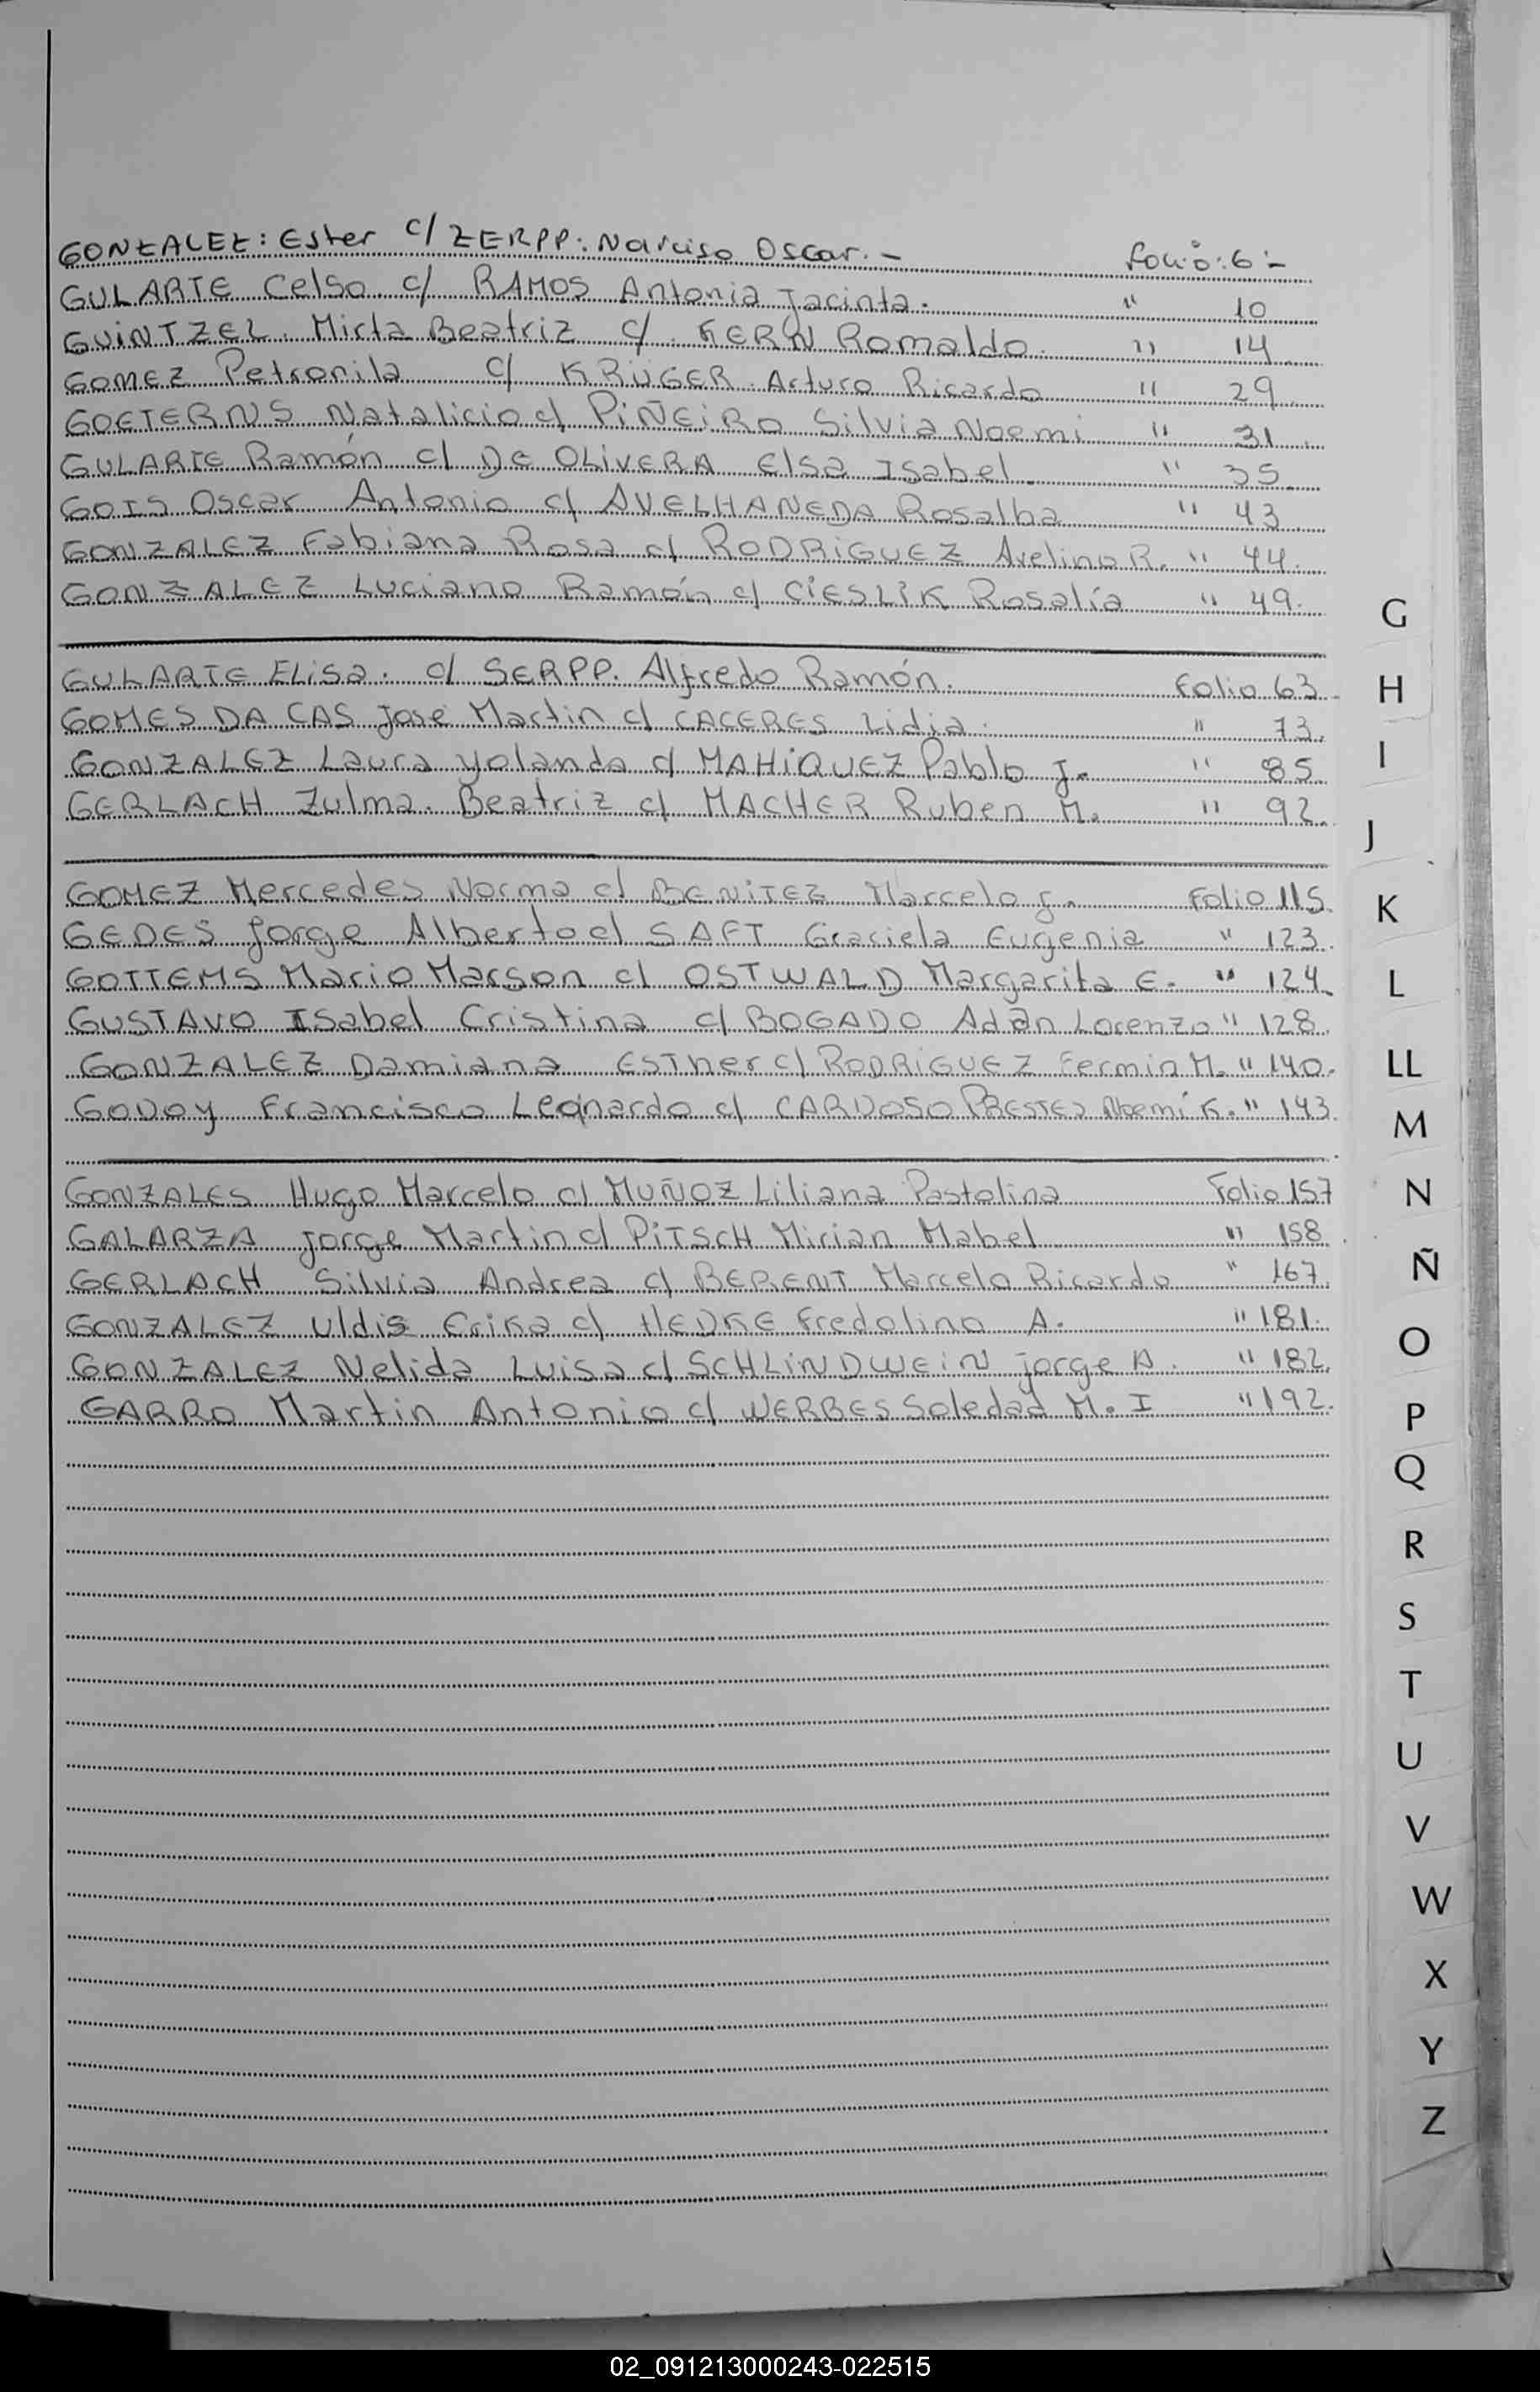 GONZALEZ: Ester c/ ZERPP: Narciso Oscar.- Folio: 6:-
GULARTE Celso. c/ RAMOS Antonia Jacinta. " 10
GUiNTZEL. Mirta Beatriz c/. KERN Romaldo. " 14
GOMEZ Petronila c/ KRÜGER. Arturo Ricardo " 29
GOETERNS Natalicio c/ PiÑEiRO Silvia Noemi " 31
GULARTE Ramón c/ DE OLiVERA Elsa Isabel. " 35
GOIS Oscar Antonio c/ AVELHANEDA Rosalba " 43
GONZALEZ Fabiana Rosa c/ RODRiGUEZ Avelino R. " 44.
GONZALEZ Luciano Ramón c/ CiESLiK Rosalía " 49.
GULARTE ELisa. c/ SERPP. Alfredo Ramón. Folio 63
GOMES DA CAS José Martin c/ CACERES Lidia. " 73.
GONZALEZ Laura Yolanda c/ MAHiQUEZ Pablo J. " 85
GERLACH Zulma. Beatriz c/ MACHER Ruben M. " 92.
GOMEZ Mercedes Norma c/ BENiTEZ Marcelo J. Folio 115
GEDES Jorge Alberto c/ SAFT Graciela Eugenia " 123.
GOTTEMS Mario Marson c/ OSTWALD Margarita E. " 124.
GUSTAVO Isabel Cristina c/ BOGADO Adán Lorenzo " 128.
GONZALEZ Damiana ESTher c/ RODRiGUEZ Fermin M. " 140.
GODOY Francisco Leonardo c/ CARDOSO PRESTES Noemí K. " 143
GONZALES Hugo Marcelo c/ MUÑOZ Liliana Pastolina Folio 157
GALARZA Jorge Martin c/ PiTSCH Mirian Mabel " 158
GERLACH Silvia Andrea c/ BERENT Marcelo Ricardo " 167.
GONZALEZ Uldis Erika c/ HEDKE Fredolino A. " 181.
GONZALEZ Nelida Luisa c/ SCHLiNDWEiN Jorge A. " 182.
GARRO Martin Antonio c/ WERBES Soledad M. I " 192.
G
H
I
J
K
L
LL
M
N
Ñ
O
P
Q
R
S
T
U
V
W
X
Y
Z
02_091213000243-022515